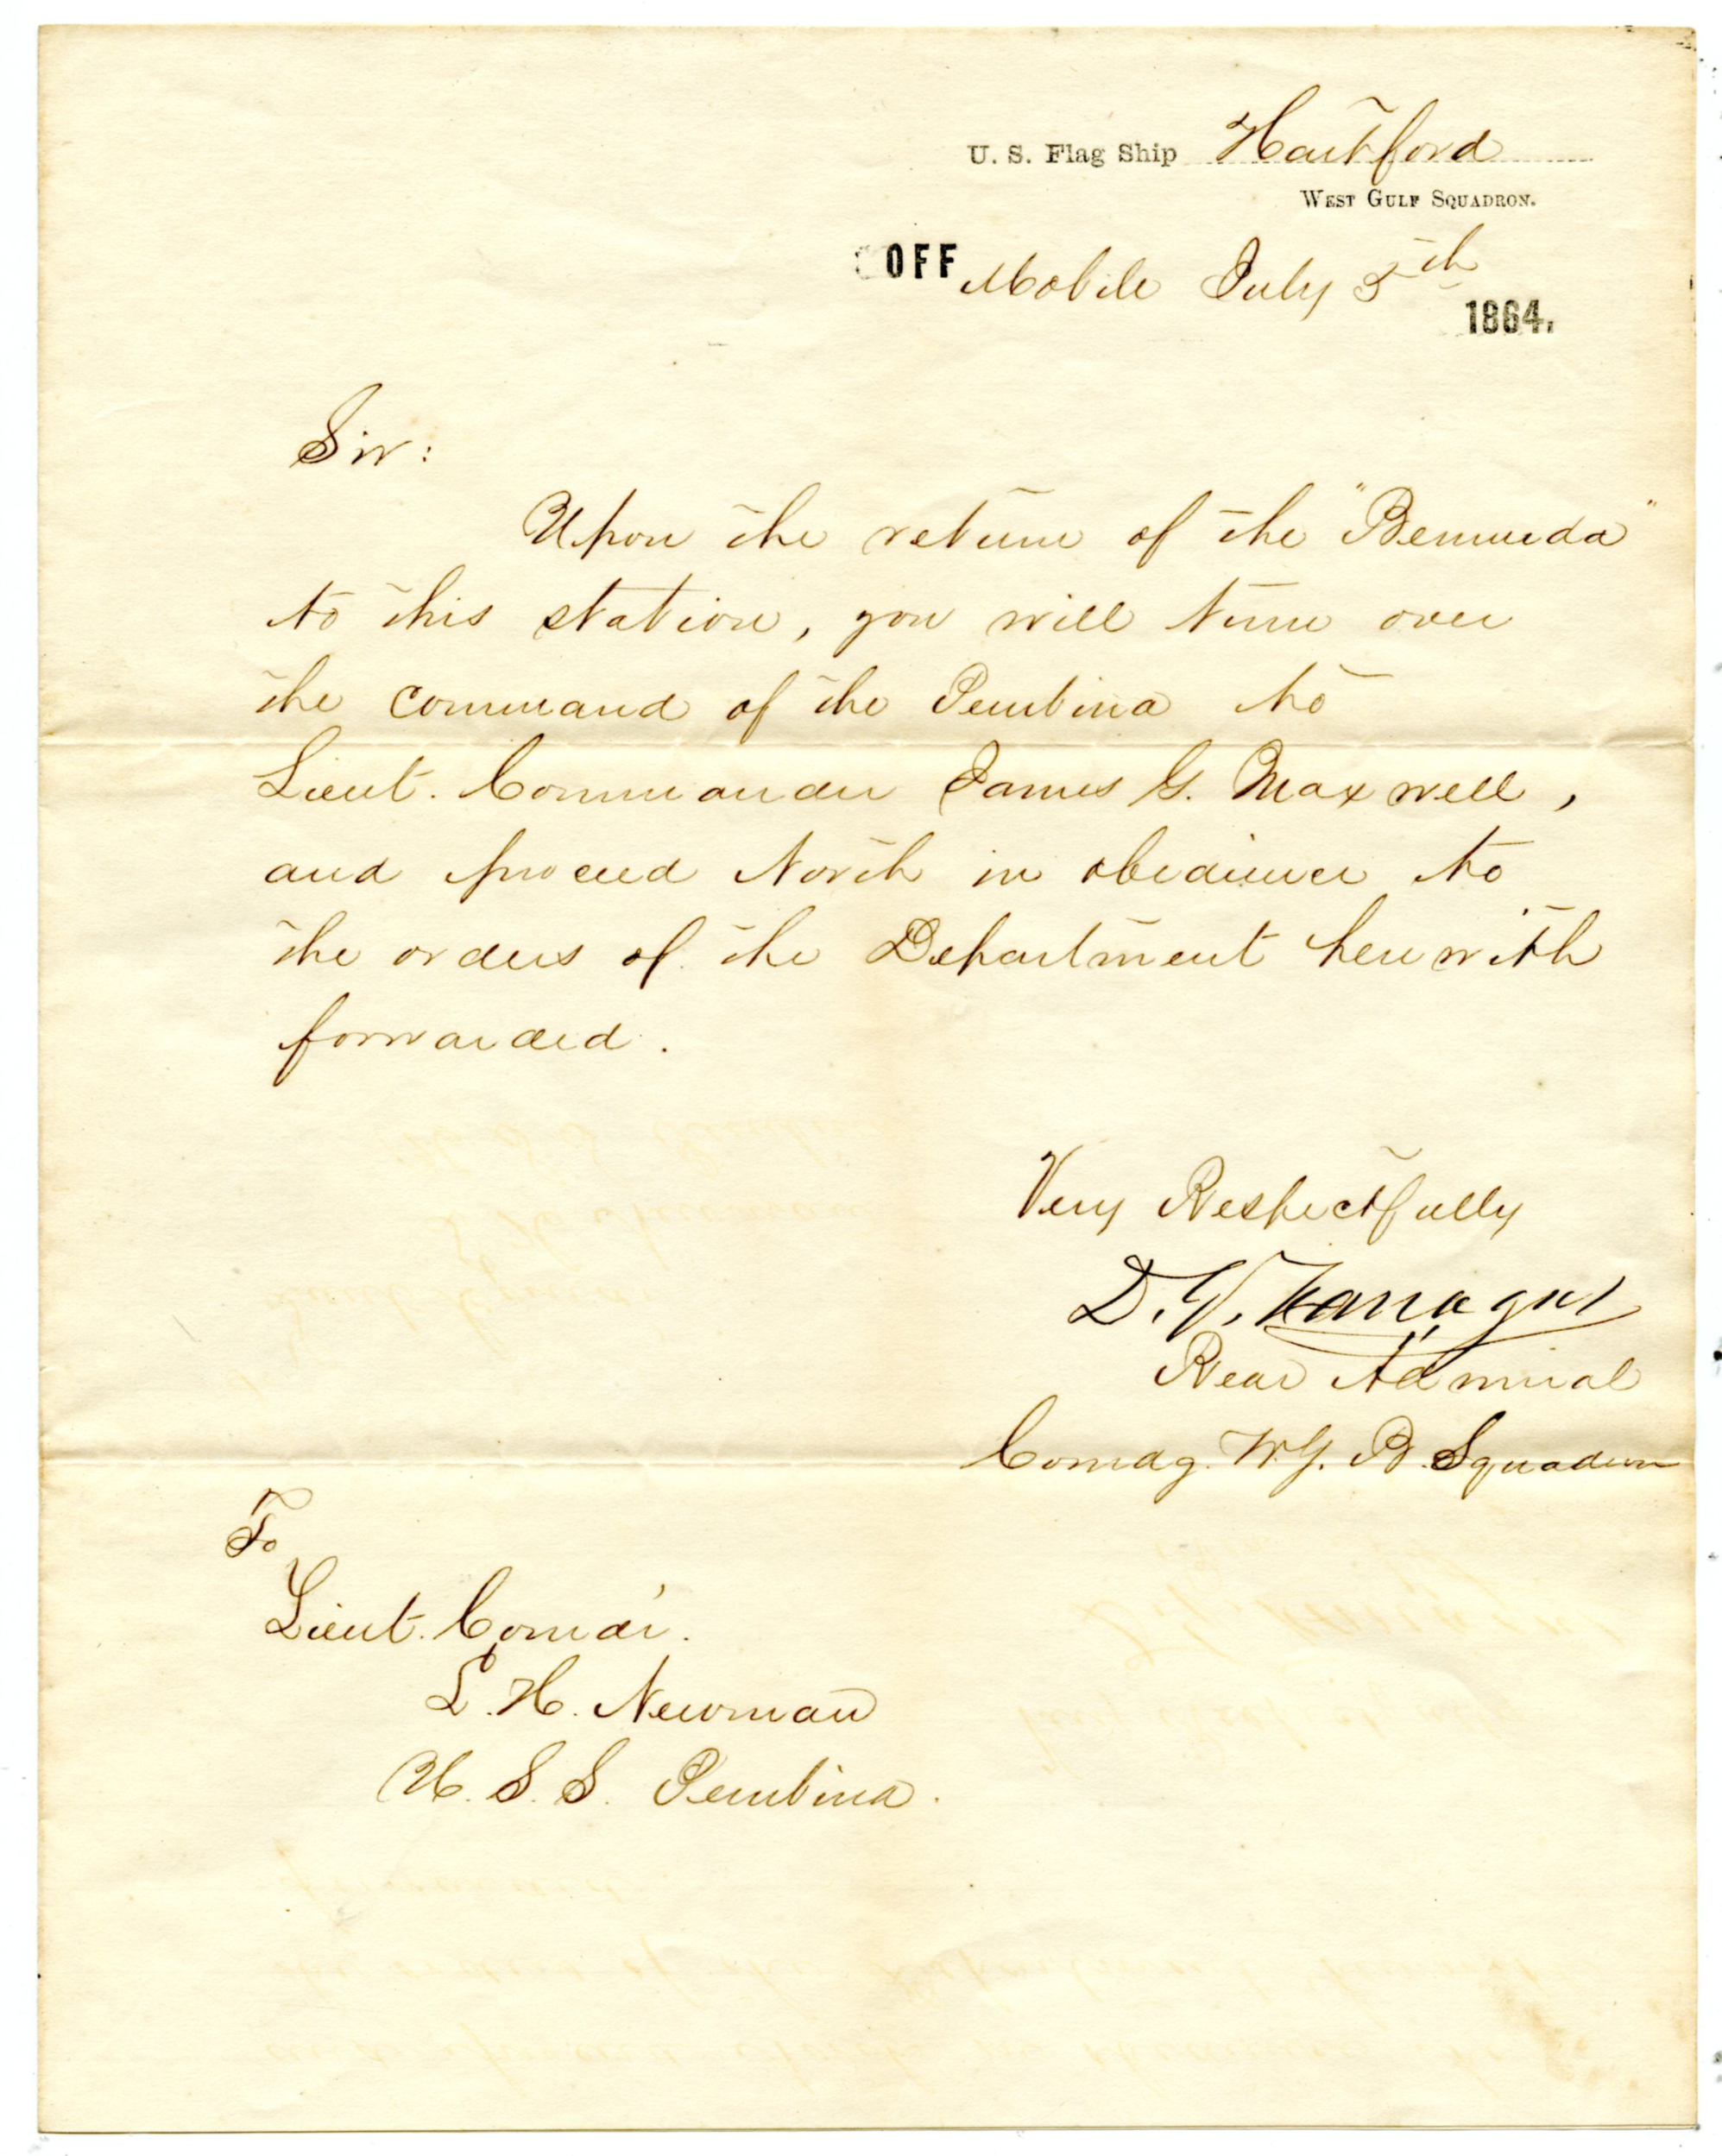 U. S. Flag Ship Hartford
WEST GULF SQUADRON.
OFF Mobile July 5th
1864.
Sir:
Upon the return of the "Bermuda"
to this station, you will turn over
the command of the Pembina to
Lieut. Commander James G. Maxwell,
and proceed North in obedience to
the orders of the Department herewith
forwarded.
Very Respectfully
D. G. Farragut
Rear Admiral
Comdg. W. G. B. Squadron
To
Lieut. Comdr.
L. H. Newman
U. S. S. Pembina.